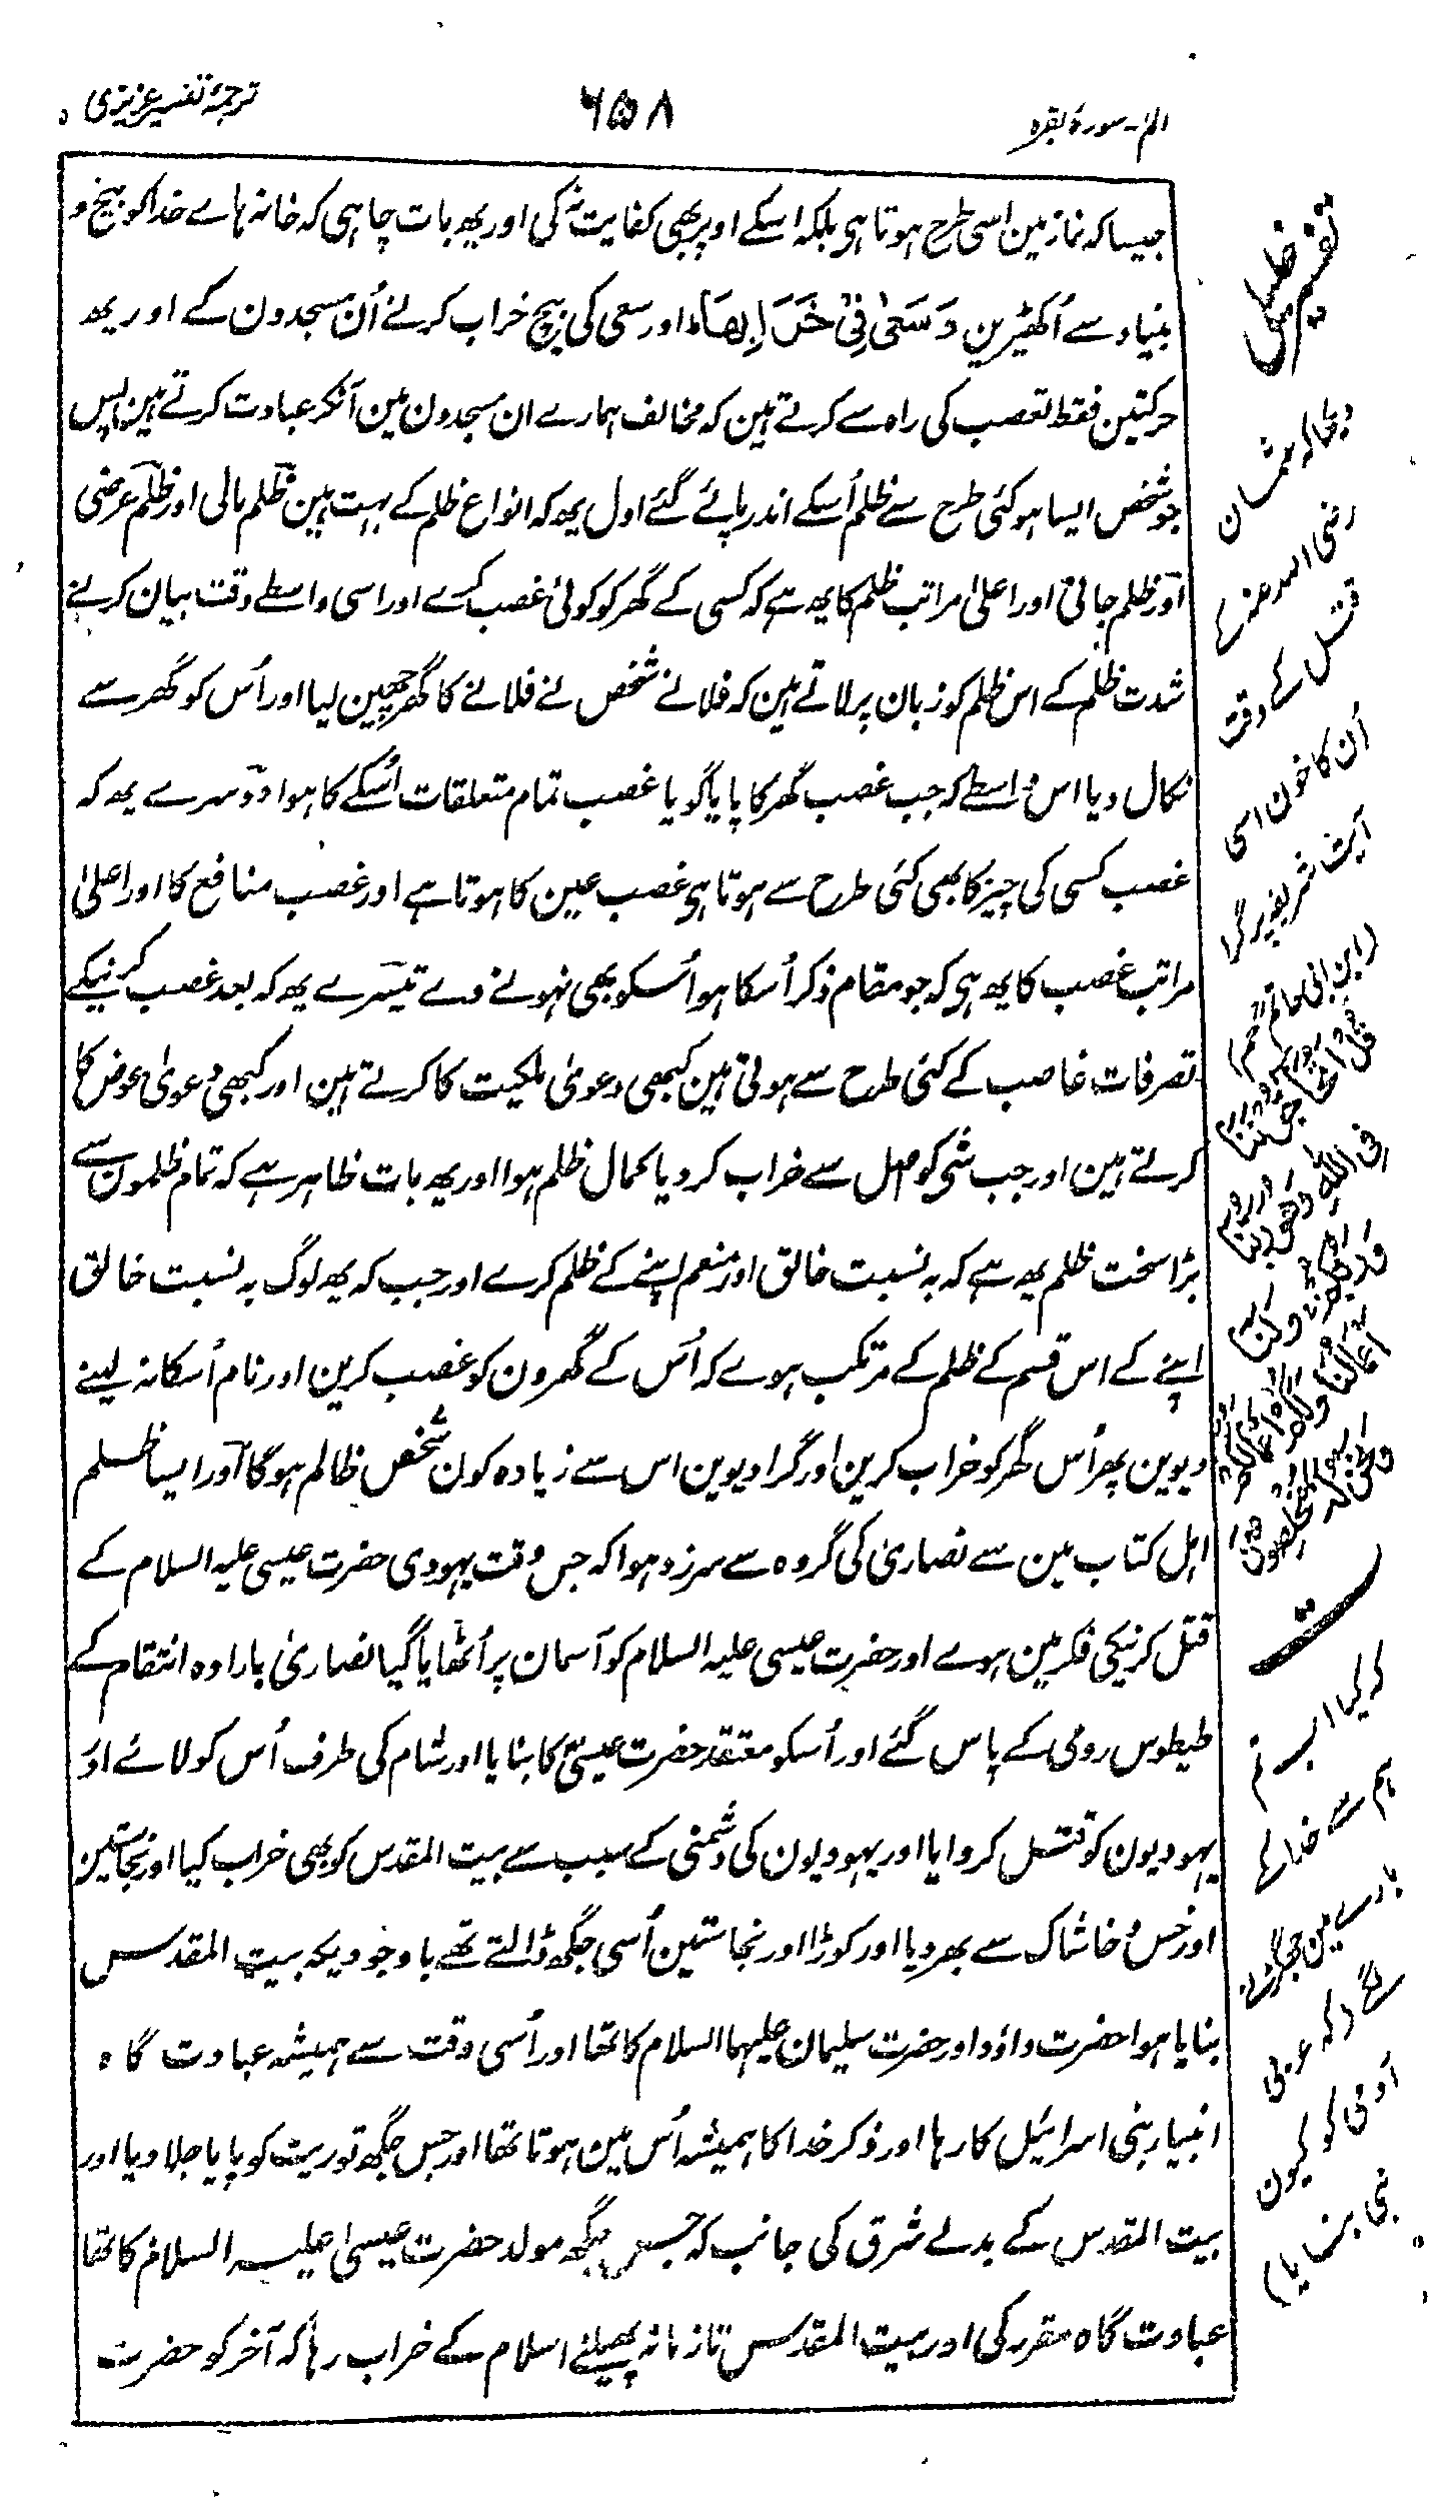 الم - سورۂ بقرہ
٦٥٨
ترجمۂ تفسیر عزیزی
جیسا کہ نماز مین اسی طرح ہوتا ہی بلکہ اسکے اوپر بھی کفایت نہ کی اور یہہ بات چاہی کہ خانہ ہاے خدا کو بیخ و
بنیاد سے اُکھیڑین وَسَعىٰ فِيْ خَرَابِهَا اور سعی کی بیچ خراب کرنے اُن مسجدون کے اور یہہ
حرکتین فقط تعصب کی راہ سے کرتے ہین کہ مخالف ہمارے ان مسجدون مین آنکر عبادت کرتے ہین پس
جو شخص ایسا ہو کئی طرح سے ظلم اُسکے اندر پائے گئے اول یہہ کہ انواع ظلم کے بہت ہین ظلم مالی اور ظلم عرضی
اور ظلم جانی اور اعلیٰ مراتب ظلم کا یہہ ہے کہ کسی کے گھر کو کوئی غصب کرے اور اسی واسطے وقت بیان کرنے
شدت ظلم کے اس ظلم کو زبان پر لاتے ہین کہ فلانے شخص نے فلانے کا گھر چھین لیا اور اُس کو گھر سے
نکال دیا اس واسطے کہ جب غصب گھر کا پایا گویا غصب تمام متعلقات اُسکے کا ہوا دوسرے یہہ کہ
غصب کسی کی چیز کا بھی کئی طرح سے ہوتا ہی غصب عین کا ہوتا ہے اور غصب منافع کا اور اعلیٰ
مراتب غصب کا یہہ ہی کہ جو مقام ذکر اُسکا ہو اُسکو بھی نہونے دے تیسرے یہہ کہ بعد غصب کرنیکے
تصرفات غاصب کے کئی طرح سے ہوتی ہین کبھی دعویٰ ملکیت کا کرتے ہین اور کبھی دعویٰ عوض کا
کرتے ہین اور جب شی کو اصل سے خراب کر دیا کمال ظلم ہوا اور یہہ بات ظاہر ہے کہ تمام ظلمون سے
بڑا سخت ظلم یہہ ہے کہ بہ نسبت خالق اور منعم اپنے کے ظلم کرے اور جب کہ یہہ لوگ بہ نسبت خالق
اپنے کے اس قسم کے ظلم کے مرتکب ہوے کہ اُس کے گھرون کو غصب کرین اور نام اُسکا نہ لینے
دیوین پھر اُس گھر کو خراب کرین اور گرا دیوین اس سے زیادہ کون شخص ظالم ہوگا اور ایسا ظلم
اہل کتاب مین سے نصاریٰ کی گروہ سے سرزد ہوا کہ جس وقت یہودی حضرت عیسی علیہ السلام کے
قتل کرنیکی فکر مین ہوے اور حضرت عیسی علیہ السلام کو آسمان پر اُٹھایا گیا نصاریٰ بارادہ انتقام کے
طیطوس رومی کے پاس گئے اور اُسکو معتقد حضرت عیسیٰؑ کا بنایا اور شام کی طرف اُس کو لائے اور
یہودیون کو قتل کروایا اور یہودیون کی دشمنی کے سبب سے بیت المقدس کو بھی خراب کیا اور نجاستین
اور خس و خاشاک سے بھر دیا اور کوڑا اور نجاستین اُسی جگہہ ڈالتے تھے باوجودیکہ بیت المقدس
بنایا ہوا حضرت داؤد اور حضرت سلیمان علیہما السلام کا تھا اور اُسی وقت سے ہمیشہ عبادت گاہ
انبیاء بنی اسرائیل کا رہا اور ذکر خدا کا ہمیشہ اُس مین ہوتا تھا اور جس جگہہ توریت کو پایا جلا دیا اور
بیت المقدس کے بدلے شرق کی جانب کہ جس جگہہ مولد حضرت عیسیٰ علیہ السلام کا تھا
عبادت گاہ مقرر کی اور بیت المقدس تا زمانہ پھیلنے اسلام کے خراب رہا کہ آخر کو حضرت
دیکھا کہ عثمان
رضی اللہ عنہ کے
قتل کے وقت
اُن کا خون اسی
آیت شریفہ پر گرا
(ابن ابی حاتم)
قُلْ أَتُحَاجُّونَنَا
فِي اللهِ وَهُوَ رَبُّنَا
وَرَبُّكُمْ وَلَنَا
أَعْمَالُنَا وَلَكُمْ أَعْمَالُكُمْ
وَنَحْنُ لَهُ مُخْلِصُونَ
ت
ہم سے خدا کے
بارے مین جھگڑتے
(کہ عربی
آدمی کو کیون
نبی بنایا)